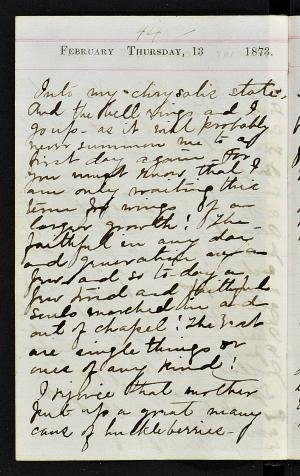 44
February Thursday, 13 1873.
Into my chrysalis state.
And the bell rings and I
go up as it will probably
never summon me to a
first day again. For
you must know that I
am only waiting this
term for wings of a
larger growth! The
faithful in any day
and generation are
few and so to-day a
few tired and faithful
souls marched in and
out of chapel! The rest
are single things or
ones of any kind!
I rejoice that mother
put up a great many
cans of huckleberries-